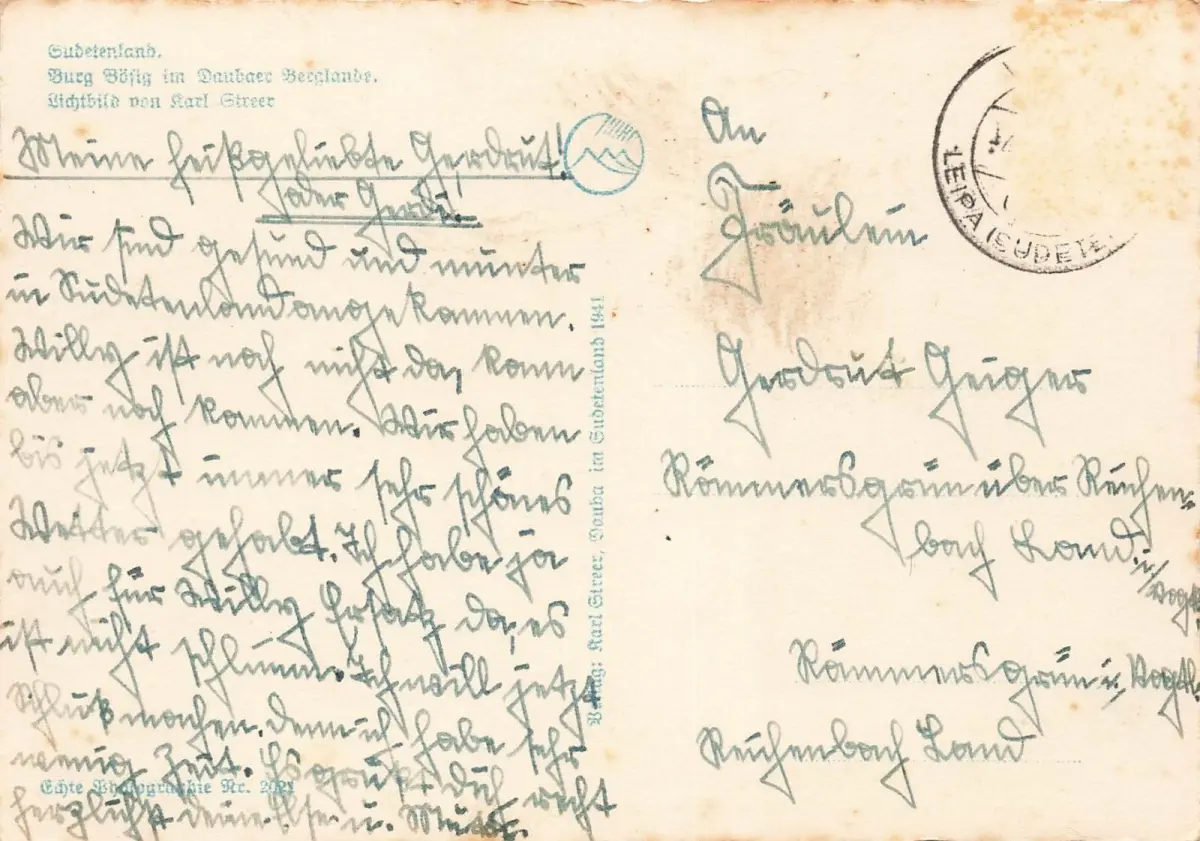 Sudetenland.
Burg Bösig im Daubaer Berglande.
Lichtbild von Karl Streer
Meine heißgeliebte Gerdrut!
oder Gerdi.
Wir sind gesund und munter
in Sudetenland angekommen.
Willy ist noch nicht da, kann
aber noch kommen. Wir haben
bis jetzt immer sehr schönes
Wetter gehabt. Ich habe ja
auch für Willy Ersatz da, es
ist nicht schlimm. Ich will jetzt
Schluß machen, denn ich habe sehr
wenig Zeit. Es grüßt Dich recht
herzlichst deine Ilse u. Mutti.
Echte Photographie Nr. 2021
Verlag: Karl Streer, Dauba im Sudetenland 1941
LEIPA (SUDETE
An
Fräulein
Gerdrut Geiger
Römmersgrün über Reichen-
bach Land. i/Vogtl.
Römmersgrün i, Vogtl.
Reichenbach Land